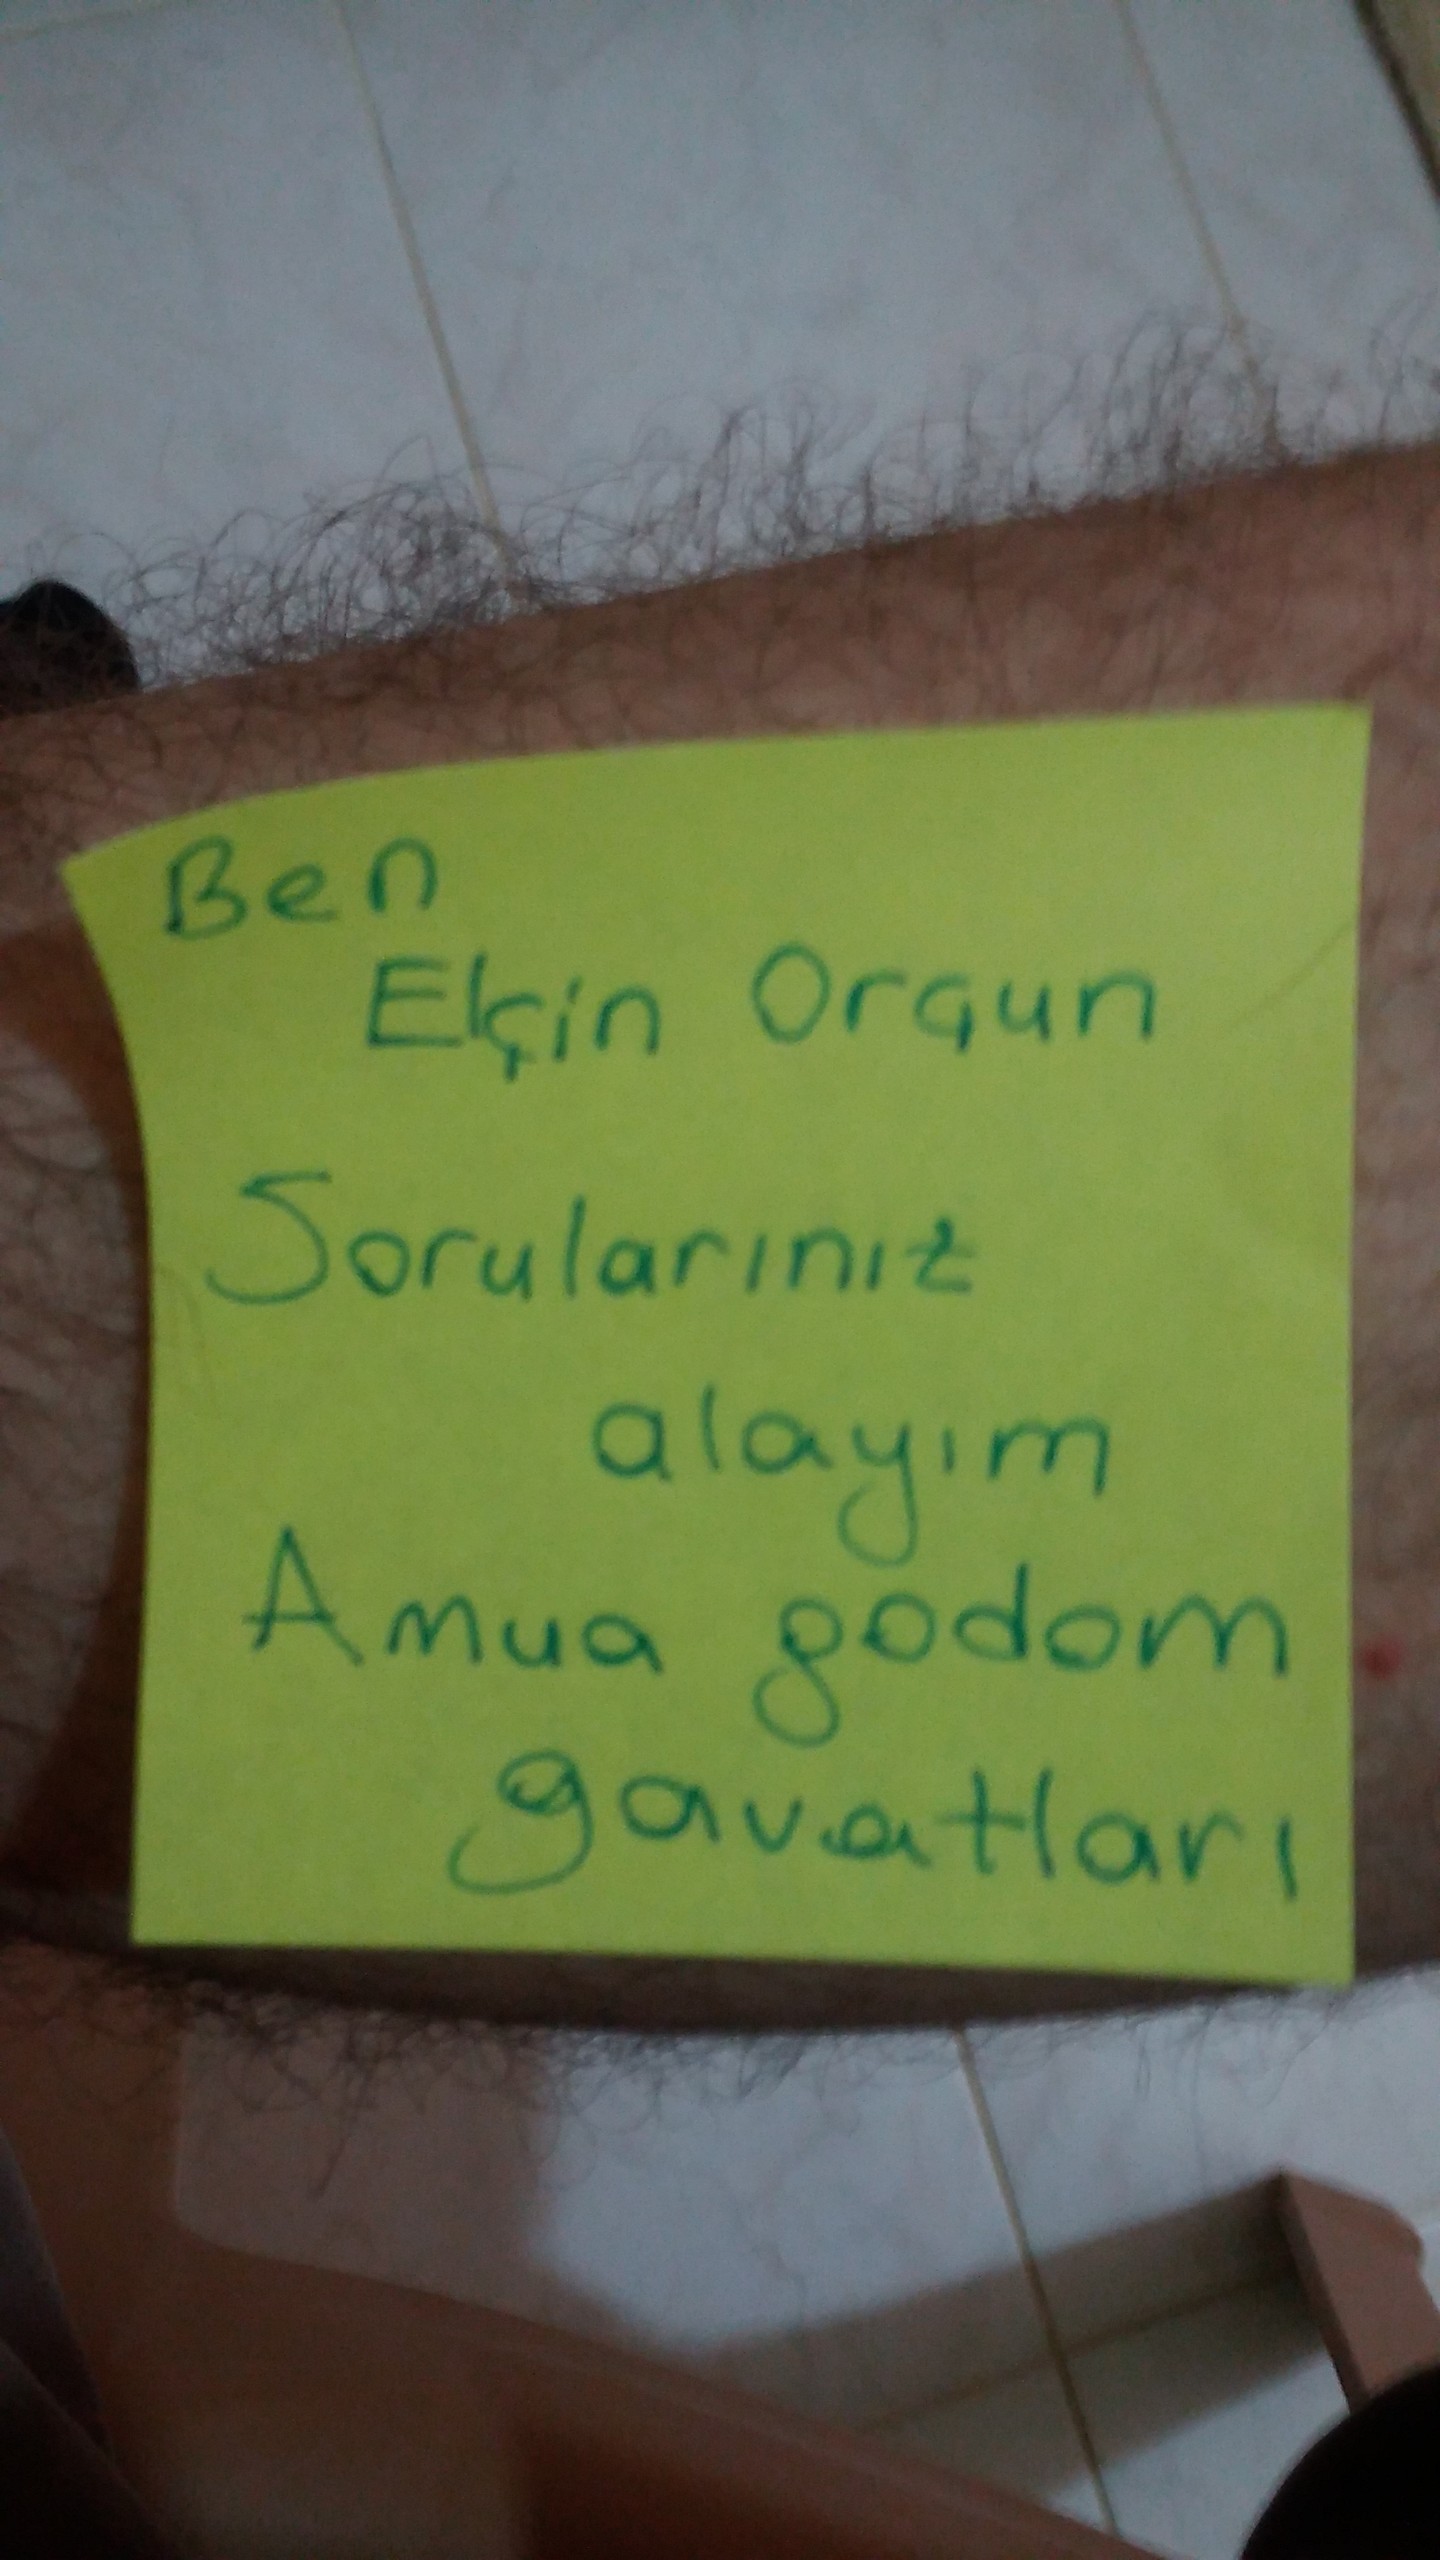 Ben
Elçin Orgun
Sorularınız
alayım
Amua godom
gavatları